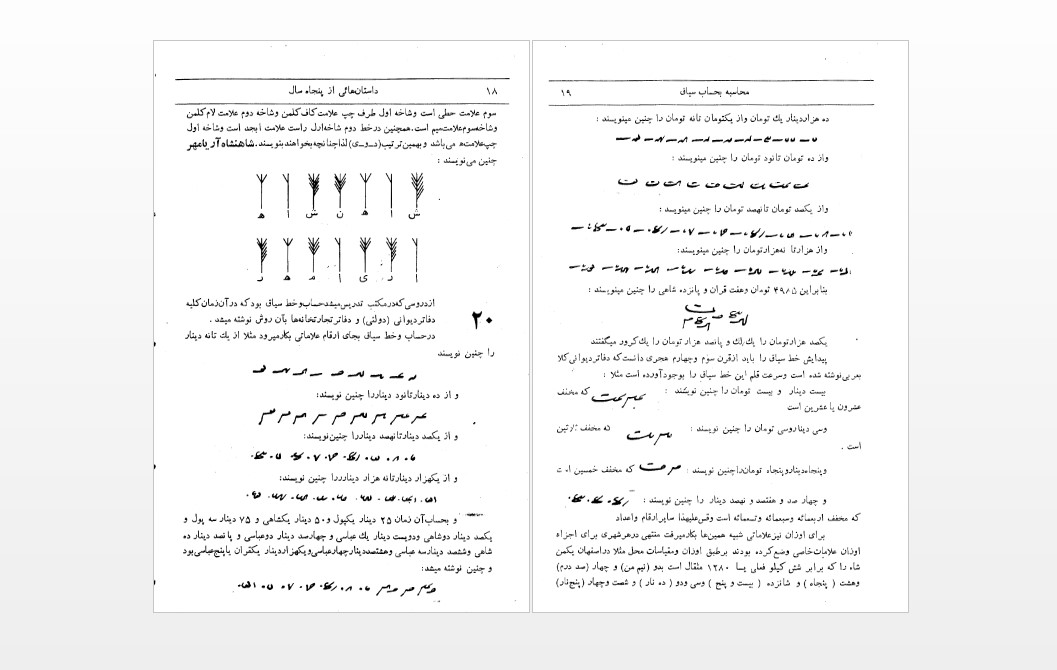 ۱۸
داستان‌هائی از پنجاه سال
سوم علامت حطی است وشاخه اول طرف چپ علامت کاف کلمن وشاخه دوم علامت لام کلمن
وشاخه سوم علامت میم است. همچنین درخط دوم شاخه اول راست علامت ابجد است وشاخه اول
چپ علامت ه می‌باشد و بهمین ترتیب (د_و_ی) لذا چنانچه بخواهند بنویسند. شاهنشاه آریامهر
چنین می‌نویسند :
ش ا ه ن ش ا ه
ا ر ی ا م ه ر
۲۰
ازدروسی که در مکتب تدریس میشد حساب وخط سیاق بود که در آن زمان کلیه
دفاتر دیوانی (دولتی) و دفاتر تجارتخانه‌ها بآن روش نوشته میشد .
درحساب وخط سیاق بجای ارقام علاماتی بکار میرود مثلا از یك تانه دینار
را چنین نویسند
و از ده دینار تانود دینار را چنین نویسند:
و از یکصد دینار تانهصد دینار را چنین نویسند:
و از یکهزار دینار تانه هزار دینار را چنین نویسند:
و بحساب آن زمان ۲۵ دینار یکپول و ۵۰ دینار یکشاهی و ۷۵ دینار سه پول و
یکصد دینار دوشاهی ودویست دینار یك عباسی و چهارصد دینار دوعباسی و پانصد دینار ده
شاهی وششصد دینار سه عباسی وهشتصد دینار چهار عباسی و یکهزار دینار یکقران یا پنج عباسی بود
و چنین نوشته میشد:
محاسبه بحساب سیاق
۱۹
ده هزار دینار یك تومان واز یکتومان تانه تومان را چنین مینویسند :
واز ده تومان تانود تومان را چنین مینویسند :
واز یکصد تومان تانهصد تومان را چنین مینویسد :
واز هزار تا نه هزار تومان را چنین مینویسند:
بنابراین ۴۹۸۵ تومان وهفت قران و پانزده شاهی را چنین مینویسند :
یکصد هزار تومان را یك لك و پانصد هزار تومان را یك کرور میگفتند
پیدایش خط سیاق را باید از قرن سوم وچهارم هجری دانست که دفاتر دیوانی کلا
بعربی نوشته شده است وسرعت قلم این خط سیاق را بوجود آورده است مثلا :
بیست دینار و بیست تومان را چنین نویسند : که مخفف
عشرون یا عشرین است
وسی دینار وسی تومان را چنین نویسند : که مخفف ثلاثین
است .
و پنجاه دینار و پنجاه تومان را چنین نویسند : که مخفف خمسین است
و چهار صد و هفتصد و نهصد دینار را چنین نویسند :
که مخفف اربعمائه وسبعمائه وتسعمائه است وقس علیهذا سایر ارقام واعداد
برای اوزان نیز علاماتی شبیه همین‌ها بکار میرفت منتهی در هر شهری برای اجزاء
اوزان علامات خاصی وضع کرده بودند بر طبق اوزان ومقیاسات محل مثلا در اصفهان یکمن
شاه را که برابر شش کیلو فعلی یا ۱۲۸۰ مثقال است بدو (نیم من) و چهار (صد درم)
وهشت ( پنجاه ) و شانزده ( بیست و پنج ) وسی ودو ( ده نار ) و شصت وچهار (پنج نار)